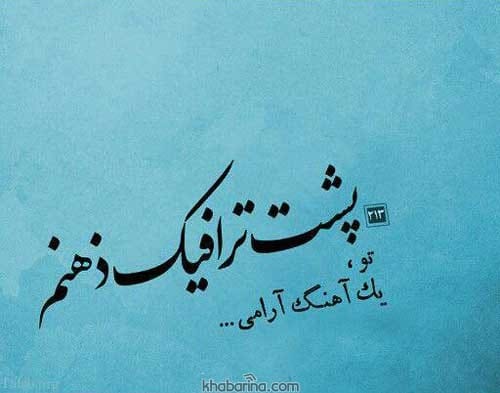 ۲۱۳
پشت ترافیک ذهنم
تو ،
یك آهنگ آرامی ...
khabarina.com